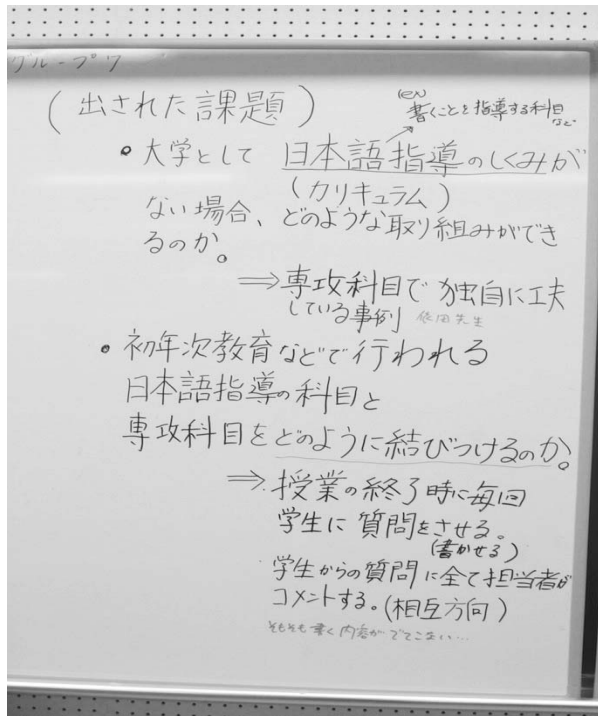 グループワ
(出された課題)
(ex)
書くことを指導する科目
など
• 大学として 日本語指導のしくみが
(カリキュラム)
ない場合、どのような取り組みができ
るのか。
⇒ 専攻科目で独自に工夫
している事例 依田先生
• 初年次教育などで行われる
日本語指導の科目と
専攻科目をどのように結びつけるのか。
⇒ 授業の終了時に毎回
学生に質問をさせる。
(書かせる)
学生からの質問に全て担当者が
コメントする。(相互方向)
そもそも書く内容がでてこない…